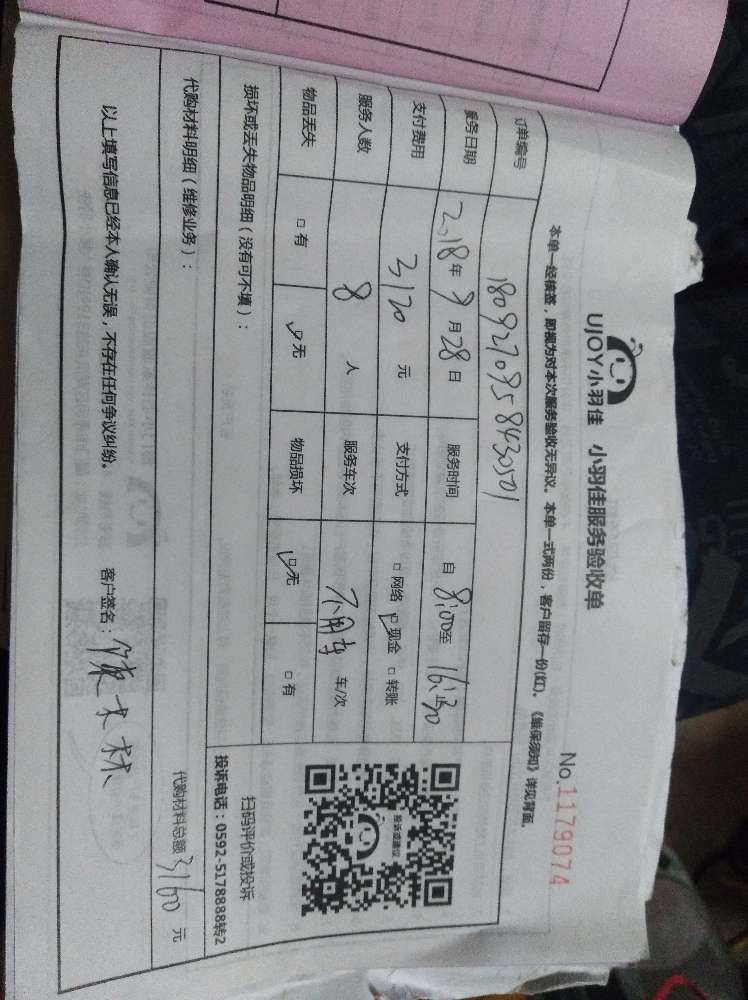 UJOY小羽佳 小羽佳服务验收单
No.1179074
本单一经核签，即视为对本次服务验收无异议。本单一式两份，客户留存一份(红)。《维保须知》详见背面。
订单编号 1809270958430501
服务日期 2018年9月28日 服务时间 自8:00至16:30止
支付费用 3120元 支付方式 □网络 ☑现金 □转账
服务人数 8人 服务车次 不用车 车/次
物品丢失 □有 ☑无 物品损坏 ☑无 □有
投诉或建议
扫码评价或投诉
投诉电话：0592-5178888转2
损坏或丢失物品明细（没有可不填）：
代购材料明细（维修业务）：
代购材料总额 3160 元
以上填写信息已经本人确认无误，不存在任何争议纠纷。 客户签名：